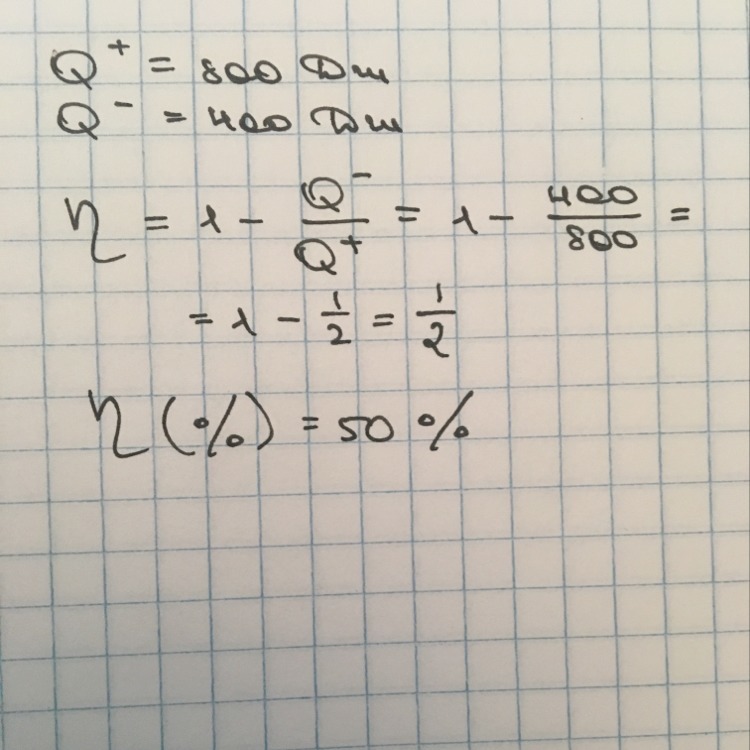 Q⁺ = 800 Дж
Q⁻ = 400 Дж
η = 1 - Q⁻/Q⁺ = 1 - 400/800 =
= 1 - 1/2 = 1/2
η (%) = 50 %